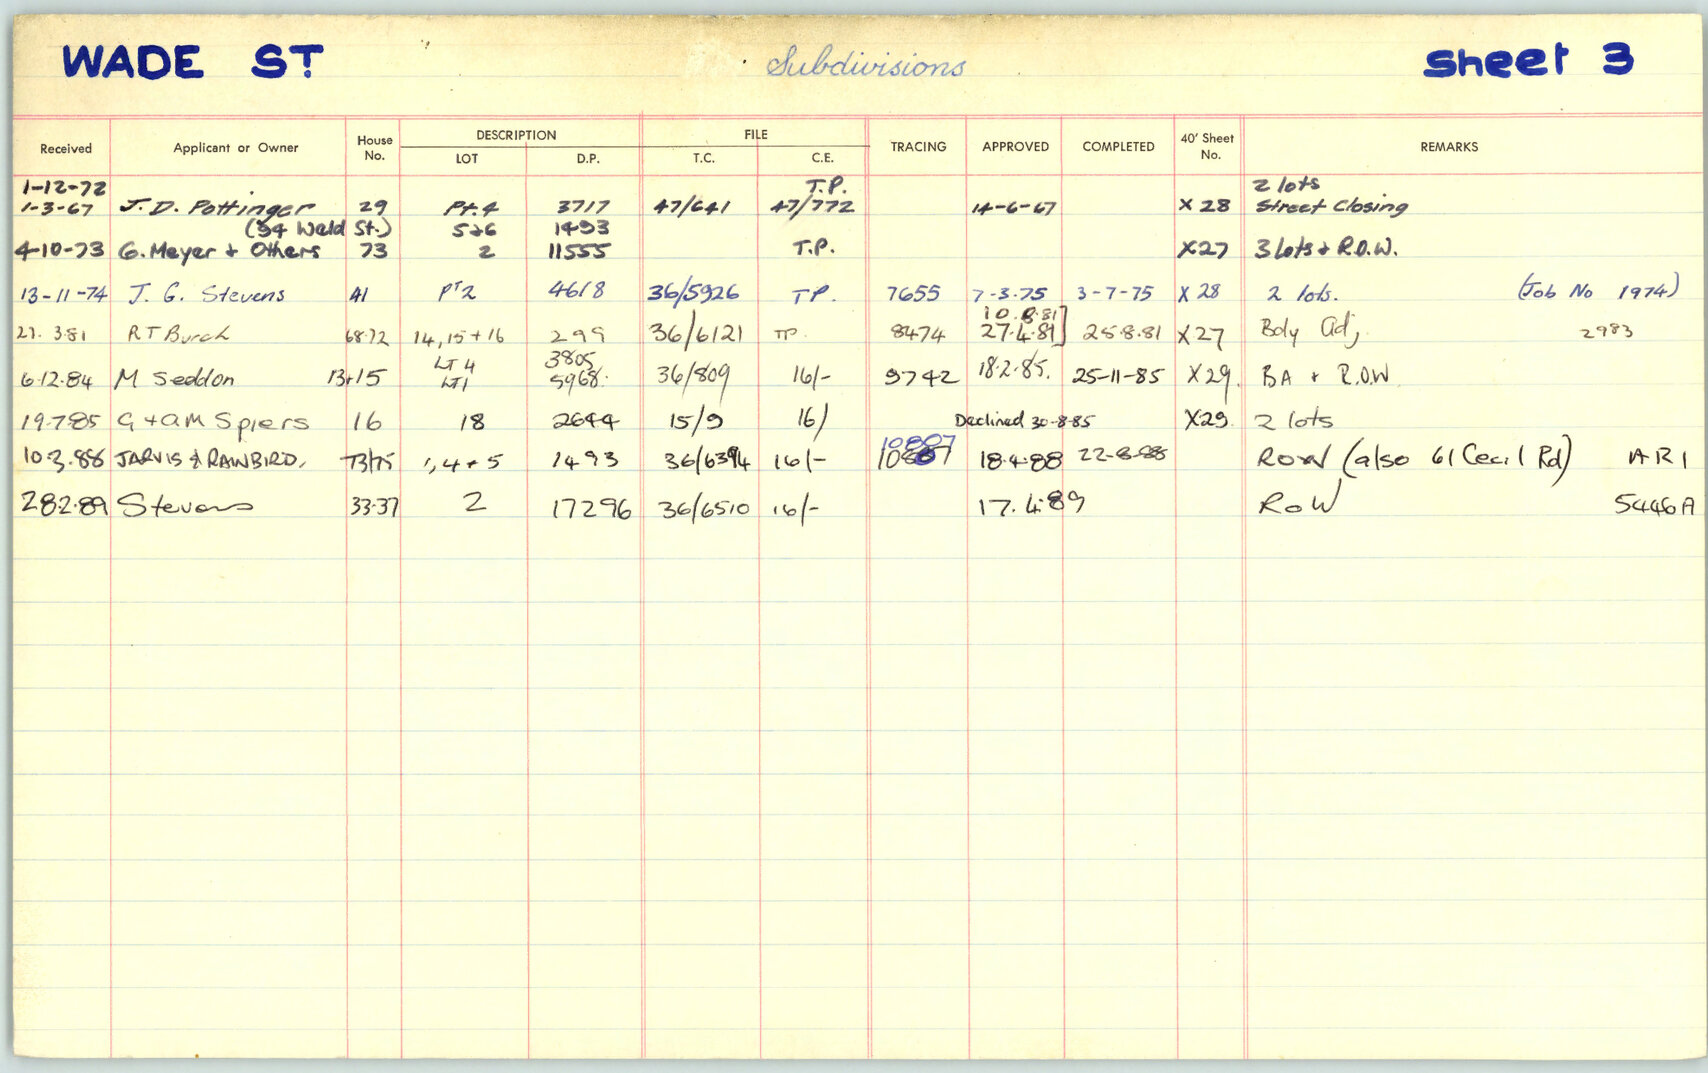 WADE ST Subdivisions Sheet 3
Received Applicant or Owner House No. DESCRIPTION LOT D.P. FILE T.C. C.E. TRACING APPROVED COMPLETED 40' Sheet No. REMARKS
1-12-72 T.P. 2 lots
1-3-67 J. D. Pottinger 29 Pt. 4 3717 47/641 47/772 14-6-67 X 28 Street Closing
(34 Wald St.) 5&6 1493
4-10-73 G. Meyer & Others 73 2 11555 T.P. X27 3 lots & R.O.W.
13-11-74 J. G. Stevens 41 PT 2 4618 36/5926 T.P. 7655 7-3-75 3-7-75 X 28 2 lots. (Job No 1974)
10.8.81]
27.3.81 R T Burch 68-72 14, 15 + 16 299 36/6121 TP. 8474 27.4.81] 25.8.81 X27 Bdy Adj, 2983
LT 4 3805
6.12.84 M Seddon 13+15 LT1 5968. 36/809 16/- 9742 18.2.85. 25-11-85 X29. BA + R.O.W
19.7.85 G + A M Spiers 16 18 2644 15/9 16/ Declined 30-8-85 X29. 2 lots
10887
10.3.88 JARVIS & RAWBIRD. 73/75 1, 4 + 5 1493 36/6394 16/- 10887 18.4.88 22-8-88 ROW (also 61 Cecil Rd) AR1
28.2.89 Stevens 33-37 2 17296 36/6510 16/- 17.4.89 RoW 5446A